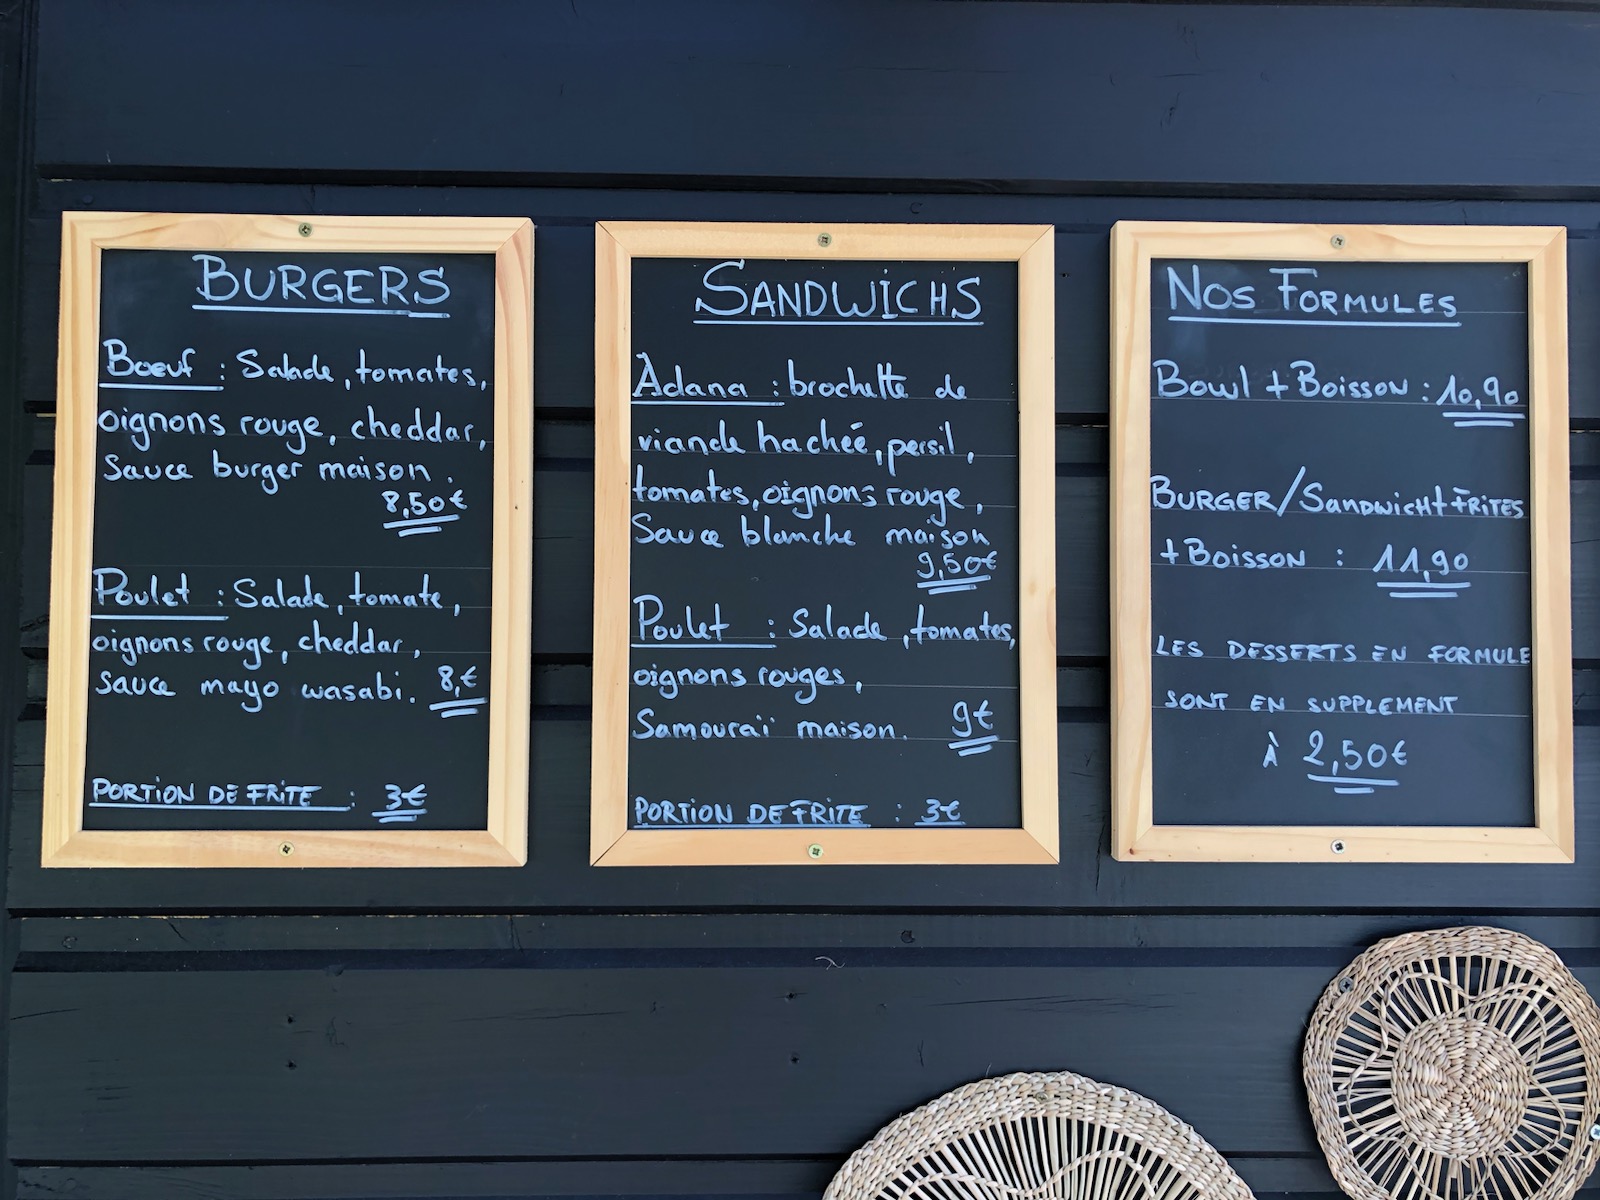 BURGERS
Boeuf : Salade, tomates,
oignons rouge, cheddar,
Sauce burger maison.
8,50€
Poulet : Salade, tomate,
oignons rouge, cheddar,
sauce mayo wasabi. 8,€
PORTION DE FRITE : 3€
SANDWICHS
Àdana : brochette de
viande hachée, persil,
tomates, oignons rouge,
Sauce blanche maison
9,50€
Poulet : Salade, tomates,
oignons rouges,
Samouraï maison. 9€
PORTION DE FRITE : 3€
NOS FORMULES
BOWL + BOISSON : 10,90
BURGER/SANDWICH+FRITES
+BOISSON : 11,90
LES DESSERTS EN FORMULE
SONT EN SUPPLEMENT
À 2,50€